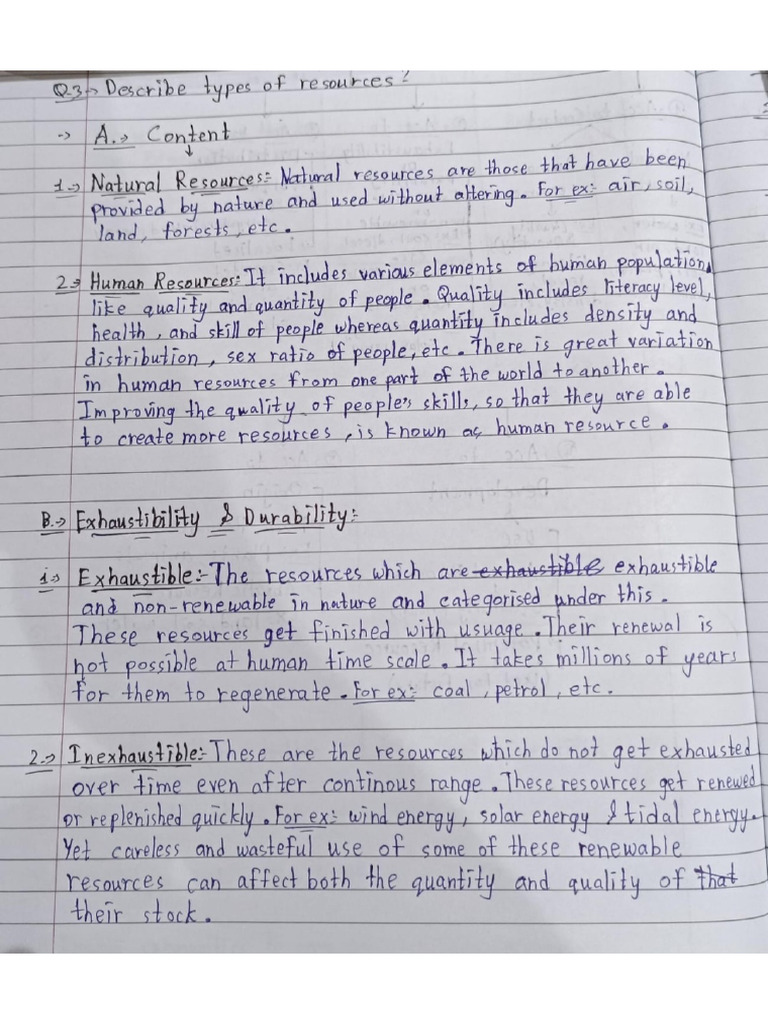 Q.3.→ Describe types of resources?
→ A.→ Content
↓
1.→ Natural Resources:- Natural resources are those that have been
provided by nature and used without altering. For ex:- air, soil,
land, forests, etc.
2.→ Human Resources:- It includes various elements of human population,
like quality and quantity of people. Quality includes literacy level,
health, and skill of people whereas quantity includes density and
distribution, sex ratio of people, etc. There is great variation
in human resources from one part of the world to another.
Improving the quality of people's skills, so that they are able
to create more resources, is known as human resource.
B.→ Exhaustibility & Durability:-
1.→ Exhaustible:- The resources which are exhaustible exhaustible
and non-renewable in nature and categorised under this.
These resources get finished with usuage. Their renewal is
not possible at human time scale. It takes millions of years
for them to regenerate. For ex:- coal, petrol, etc.
2.→ Inexhaustible:- These are the resources which do not get exhausted
over time even after continous range. These resources get renewed
or replenished quickly. For ex:- wind energy, solar energy & tidal energy.
Yet careless and wasteful use of some of these renewable
resources can affect both the quantity and quality of that
their stock.